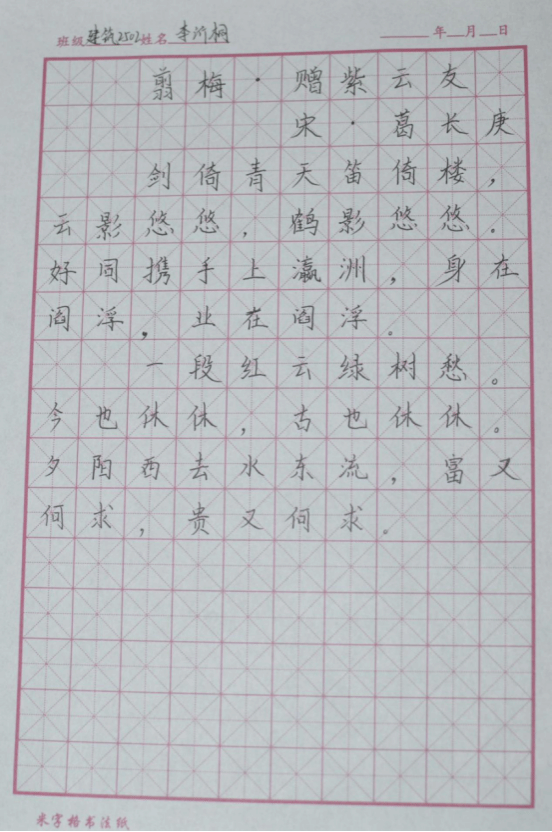 班级建筑2502姓名李沂桐 年 月 日
翦梅·赠紫云友
宋·葛长庚
剑倚青天笛倚楼，
云影悠悠，鹤影悠悠.
好同携手上瀛洲，身在
阎浮，业在阎浮。
一段红云绿树愁。
今也休休，古也休休。
夕阳西去水东流，富又
何求，贵又何求。
米字格书法纸